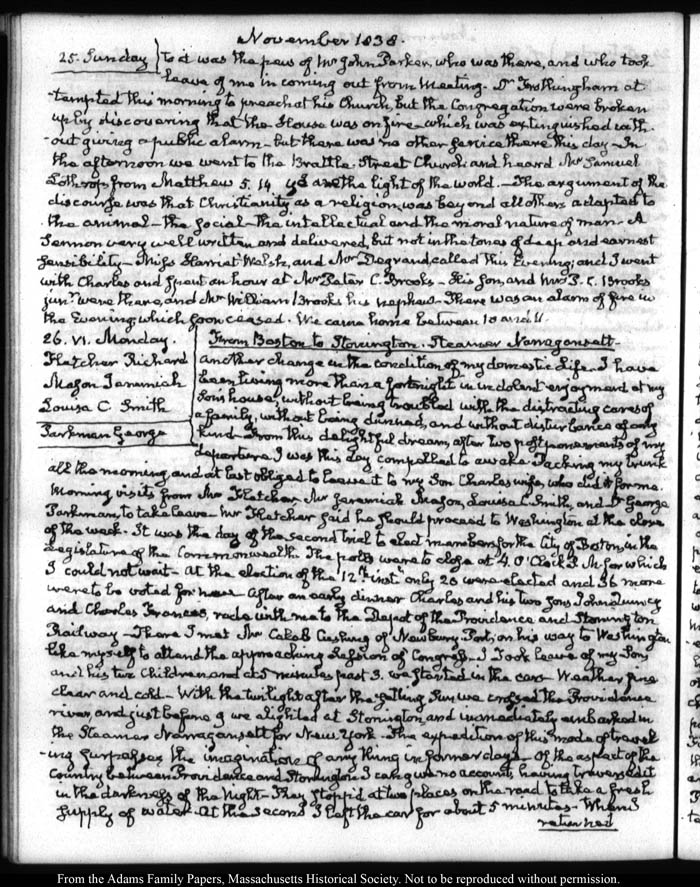 November 1838.
25. Sunday} to it was the pew of Mr John Parker, who was there, and who took
leave of me in coming out from Meeting. Dr Frothingham at
-tempted this morning to preach at his Church, but the Congregation were broken
up by discovering that the House was on fire - which was extinguished with-
-out giving a public alarm - but there was no other service there this day - In
the afternoon we went to the Brattle Street Church and heard Mr Samuel
Lothrop from Matthew 5. 14. Ye are the light of the world. - The argument of the
discourse was that Christianity as a religion, was beyond all others adapted to
the animal - the social - the intellectual and the moral nature of man - A
Sermon very well written and delivered, but not in the tones of deep and earnest
sensibility - Miss Harriet Welsh, and Mr Degrand, called this Evening, and I went
with Charles and spent an hour at Mr Peter C. Brooks - His Son, and Mrs P. C. Brooks
junr were there, and Mr William Brooks his nephew - There was an alarm of fire in
the Evening, which soon ceased. We came home between 10 and 11.
26. VI. Monday.
Fletcher Richard
Mason Jeremiah
Louisa C. Smith
Parkman George
From Boston to Stonington. Steamer Narragansett -
Another change in the condition of my domestic Life. I have
been living more than a fortnight in indolent enjoyment at my
Sons house, without being troubled with the distracting cares of
a family, without being dunned, and without disturbance of any
kind - From this delightful dream, after two postponements of my
departure I was this day compelled to awake. Packing my trunk
all the morning, and at last obliged to leave it to my Son Charles's wife, who did it for me.
Morning visits from Mr Fletcher, Mr Jeremiah Mason, Louisa C. Smith, and Dr George
Parkman, to take leave - Mr Fletcher said he should proceed to Washington at the close
of the week. It was the day of the second trial to elect members for the City of Boston, in the
Legislature of the Commonwealth. The polls were to close at 4. O'Clock P. M. for which
I could not wait - At the election of the 12th inst. only 20 were elected and 36 more
were to be voted for now - After an early dinner Charles and his two Sons John Quincy
and Charles Francis, rode with me to the Depot of the Providence and Stonington
Railway - There I met Mr Caleb Cushing of Newbury Port, on his way to Washington
like myself to attend the approaching Session of Congress. I took leave of my Son,
and his two Children and at 5 minutes past 3. we started in the cars - Weather fine
clear and cold - With the twilight after the setting Sun we crossed the Providence
river, and just before 9 we alighted at Stonington, and immediately embarked in
the Steamer Narragansett for New York - The expedition of this mode of travel
-ing surpasses the imagination of any thing in former days - Of the aspect of the
Country between Providence and Stonington I can give no account, having traversed it
in the darkness of the Night - They stopp'd at two places on the road to take a fresh
supply of water - At the second I left the car for about 5 minutes - When I
returned
From the Adams Family Papers, Massachusetts Historical Society. Not to be reproduced without permission.